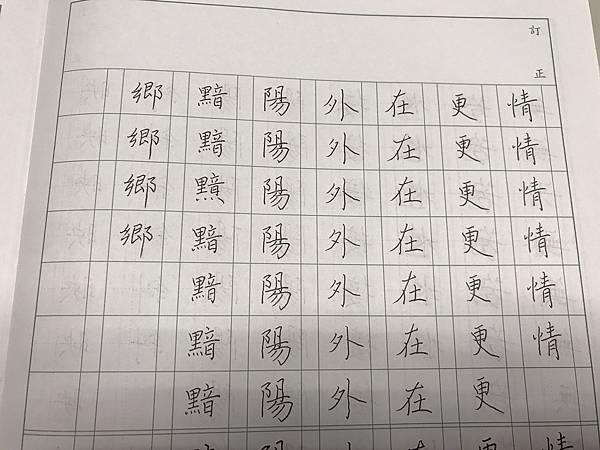 訂正
情情情情情情情
更更更更更更更更
在在在在在在在在
外外外外外外外外
陽陽陽陽陽陽陽陽
黯黯黯黯黯黯
鄉鄉鄉鄉